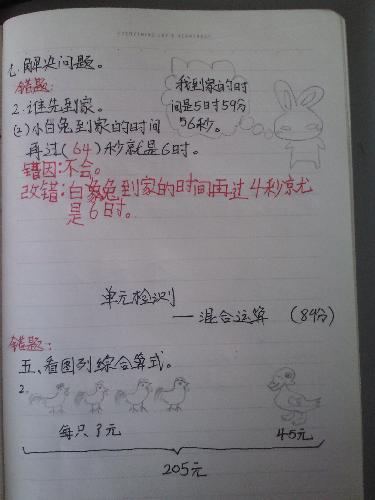 七.解决问题。
错题:
2.谁先到家。
(2)小白兔到家的时间
再过(64)秒就是6时。
我到家的时
间是5时59分
56秒。
错因:不会。
改错:白兔到家的时间再过4秒就
是6时。
单元检测
—混合运算 (84分)
错题:
五、看图列综合算式。
2.
每只?元
45元
205元